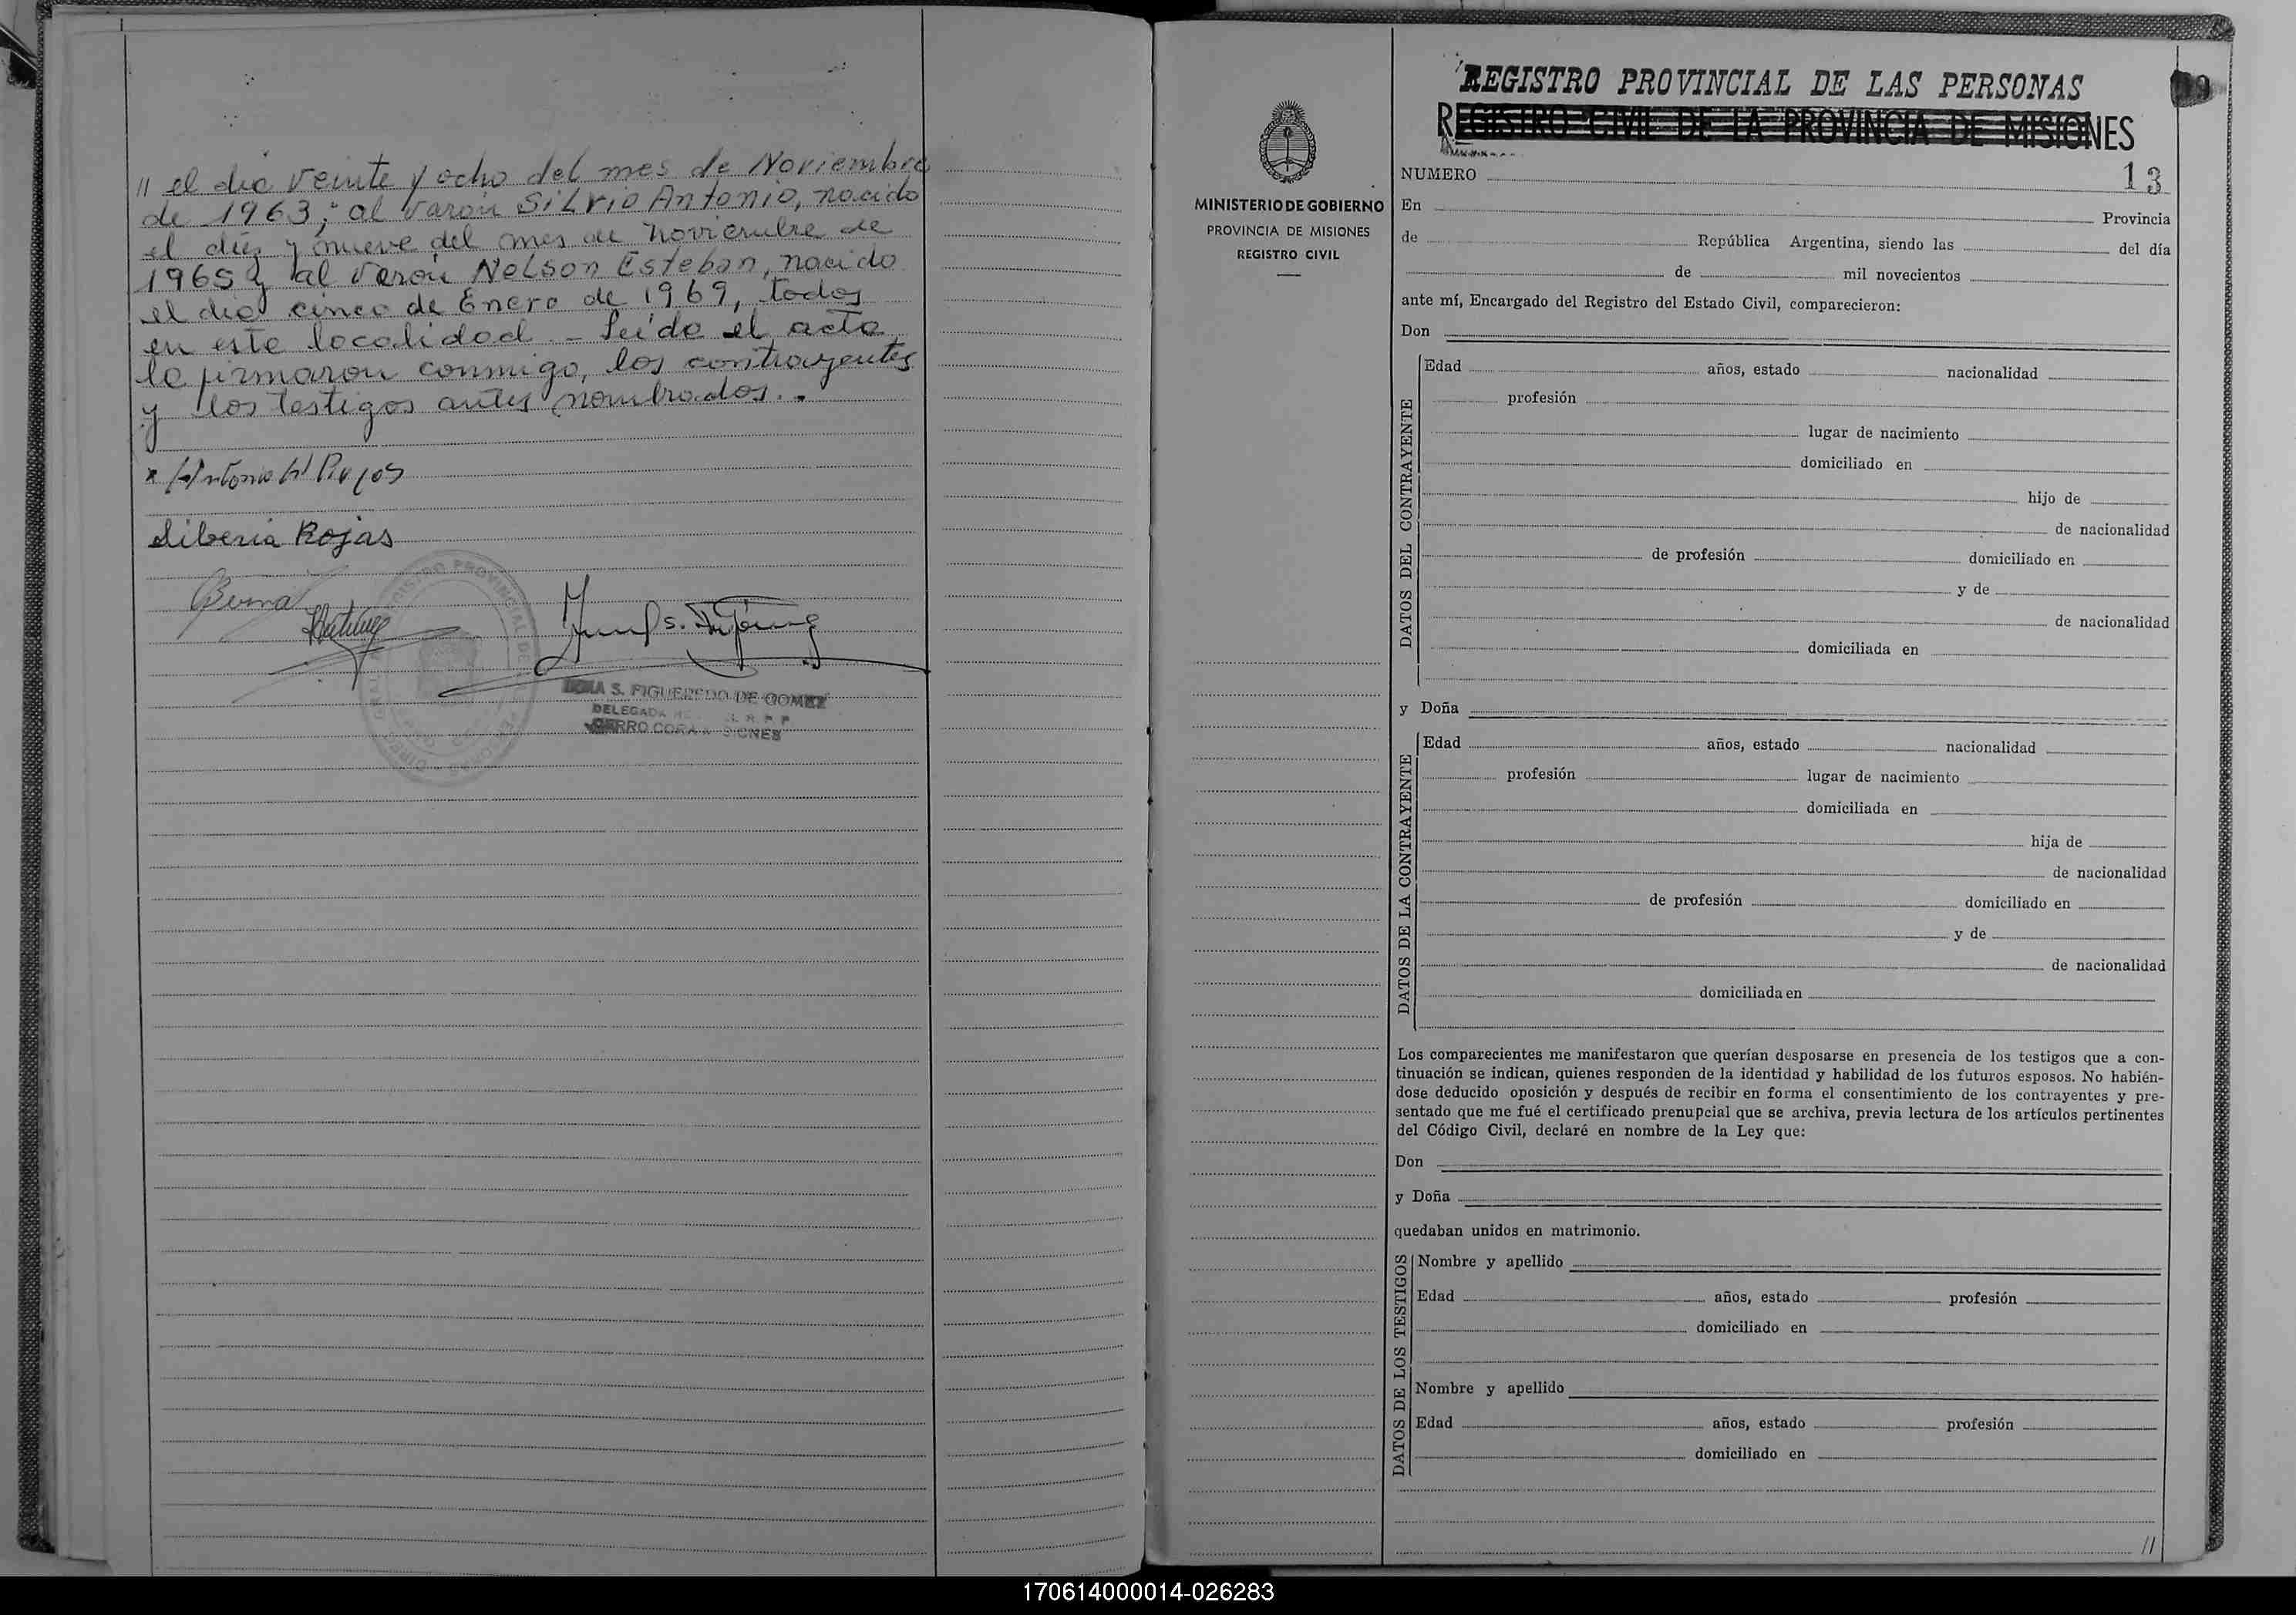 " el dia veinte y ocho del mes de Noviembre
de 1963; al varón Silvio Antonio, nacido
el diez y nueve del mes de noviembre de
1965 y al varón Nelson Esteban, nacido
el dia cinco de Enero de 1969, todos
en esta localidad. - Leída el acta
la firmaron conmigo, los contrayentes
y los testigos antes nombrados..
Antonio
Liberia Rojas
S. FIGUEREDO DE GOMEZ
DELEGADA
CERRO CORA
REGISTRO PROVINCIAL DE LAS PERSONAS
REGISTRO CIVIL DE LA PROVINCIA DE MISIONES
MINISTERIO DE GOBIERNO
PROVINCIA DE MISIONES
REGISTRO CIVIL
NUMERO 13
En Provincia
de República Argentina, siendo las del día
de mil novecientos
ante mí, Encargado del Registro del Estado Civil, comparecieron:
Don
DATOS DEL CONTRAYENTE
Edad años, estado nacionalidad
profesión
lugar de nacimiento
domiciliado en
hijo de
de nacionalidad
de profesión domiciliado en
y de
de nacionalidad
domiciliada en
y Doña
DATOS DE LA CONTRAYENTE
Edad años, estado nacionalidad
profesión lugar de nacimiento
domiciliada en
hija de
de nacionalidad
de profesión domiciliado en
y de
de nacionalidad
domiciliada en
Los comparecientes me manifestaron que querían desposarse en presencia de los testigos que a con-
tinuación se indican, quienes responden de la identidad y habilidad de los futuros esposos. No habién-
dose deducido oposición y después de recibir en forma el consentimiento de los contrayentes y pre-
sentado que me fué el certificado prenupcial que se archiva, previa lectura de los artículos pertinentes
del Código Civil, declaré en nombre de la Ley que:
Don
y Doña
quedaban unidos en matrimonio.
DATOS DE LOS TESTIGOS
Nombre y apellido
Edad años, estado profesión
domiciliado en
Nombre y apellido
Edad años, estado profesión
domiciliado en
//
170614000014-026283